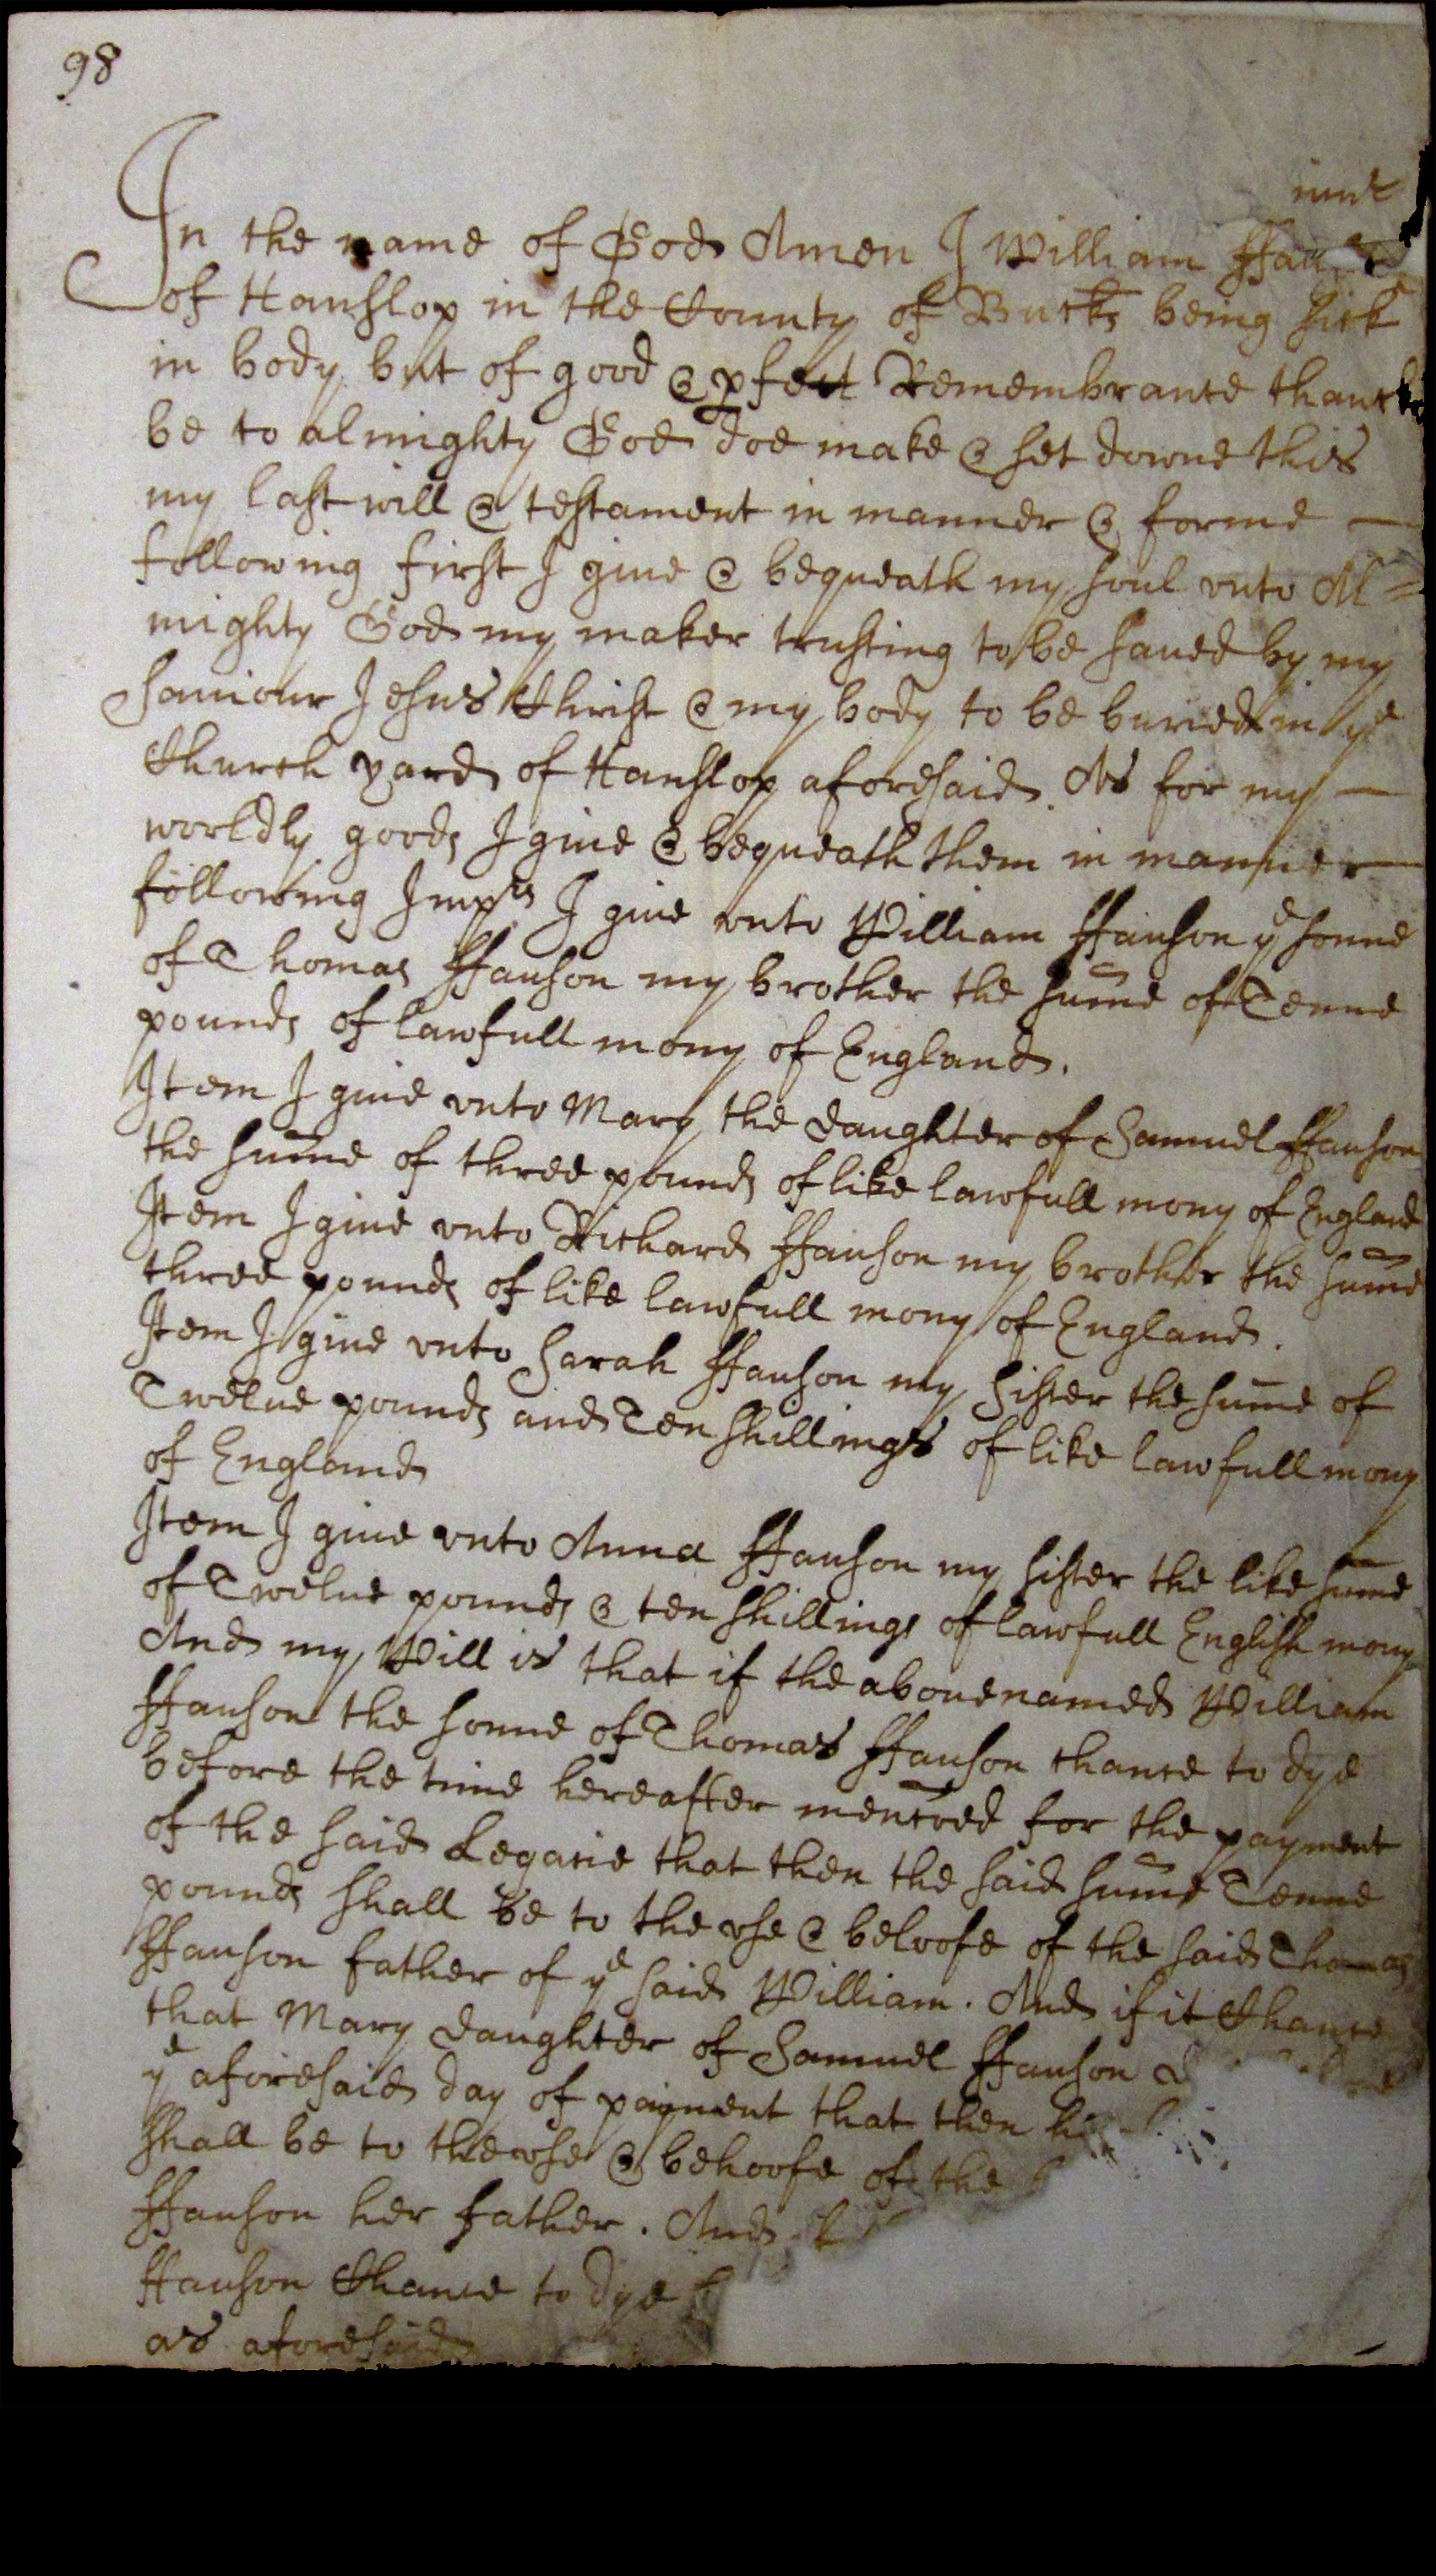 98
In the name of God Amen I William ffau
of Hanslop in the County of Bucks being sick
in body but of good & pfect Remembrance thanck
be to almighty God doe make & set downe this
my last will & testament in manner & forme —
following first I giue & bequeath my soul vnto Al=
mighty God my maker trusting to be saued by my
Sauiour Jesus Christ & my body to be buried in ye
Church yard of Hanslop aforesaid. As for my —
worldly goods I giue & bequeath them in manner —
following Imprs I giue vnto William ffauson ye sonne
of Thomas ffauson my brother the sum̄e of Tenne
pounds of lawfull mony of England.
Item I giue vnto Mary the daughter of Samuel ffauson
the sum̄e of three pounds of like lawfull mony of England
Item I giue vnto Richard ffauson my brother the sum̄e
three pounds of like lawfull mony of England.
Item I giue vnto Sarah ffauson my Sister the sum̄e of
Twelue pounds and Ten shillings of like lawfull mony
of England
Item I giue vnto Anna ffauson my sister the like sum̄e
of Twelue pounds & ten shillings of lawfull English mony
And my Will is that if the abouenamed William
ffauson the sonne of Thomas ffauson chance to dye
before the time hereafter menc̄oed for the payment
of the said Legacie that then the said sum̄e Tenne
pounds shall be to the vse & behoofe of the said Thomas
ffauson father of ye said William. And if it Chance
that Mary daughter of Samuel ffauson
ye aforesaid day of paiment that then
shall be to the vse & behoofe of the
ffauson her father. And
ffauson Chance to dye
as aforesaid